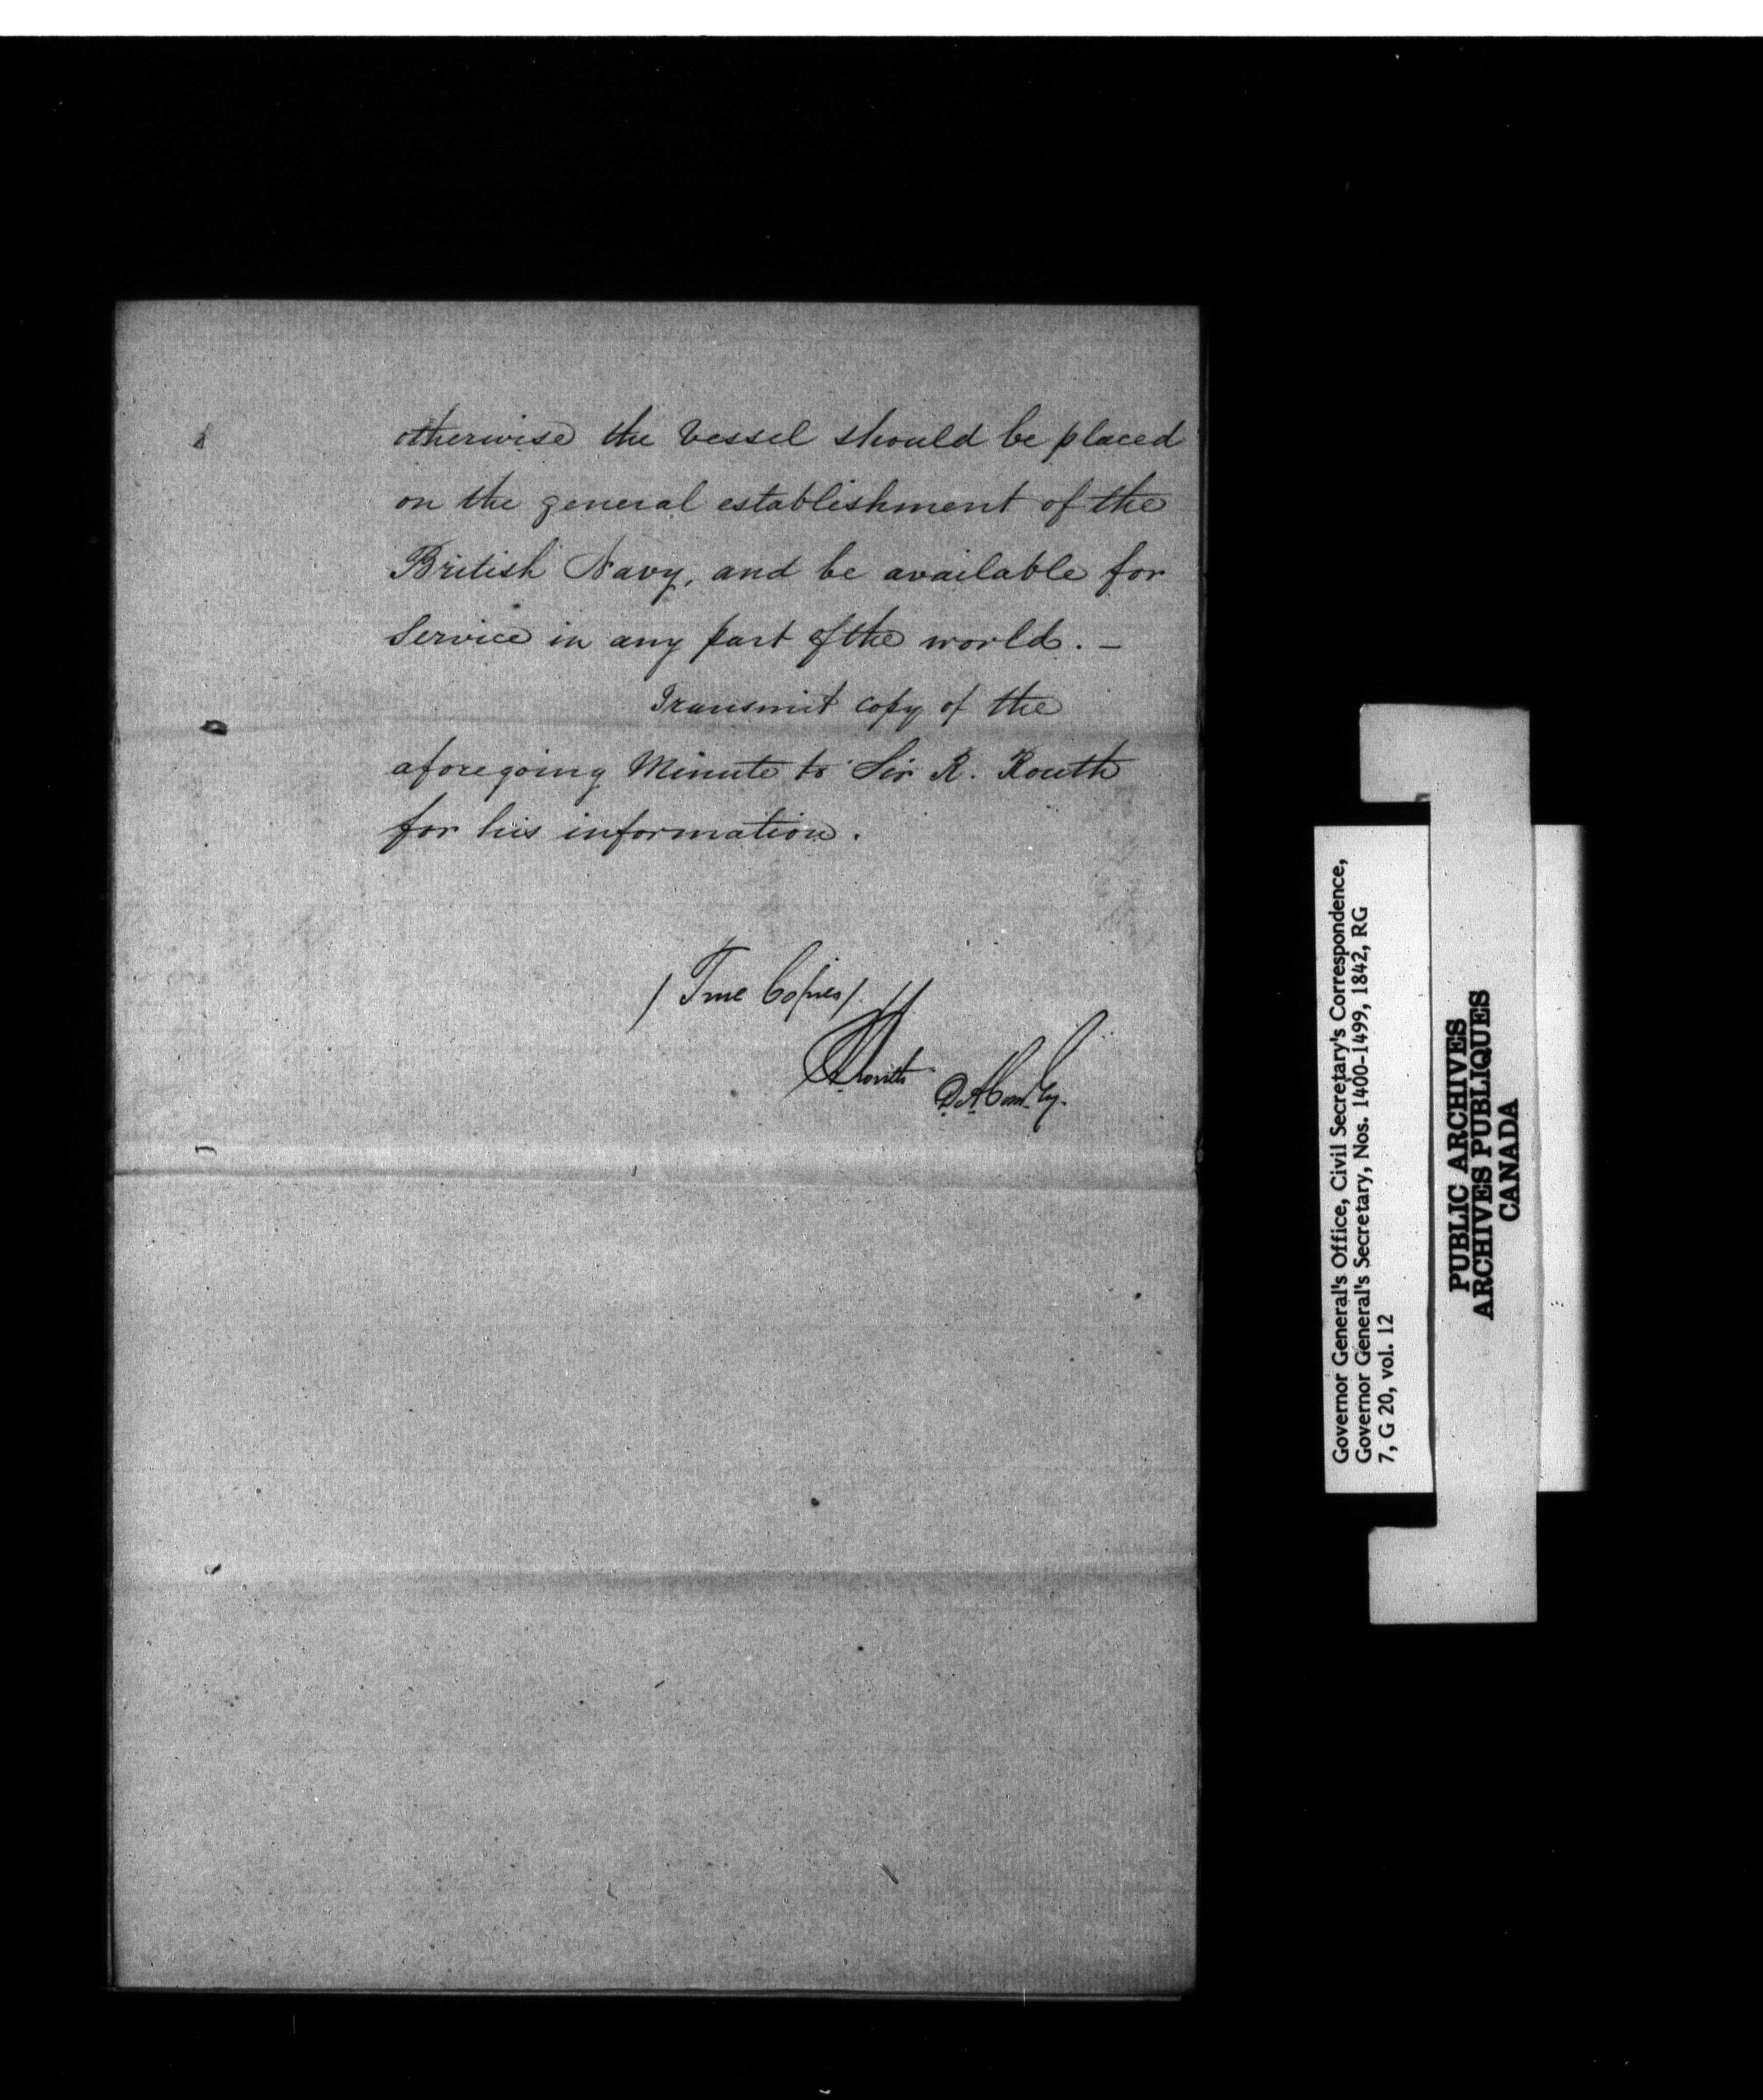 otherwise the Vessel should be placed
on the general establishment of the
British Navy, and be available for
Service in any part of the world. –
Transmit copy of the
aforegoing Minute to Sir R. Routh
for his information.
/ True Copies /
Governor General's Office, Civil Secretary's Correspondence,
Governor General's Secretary, Nos. 1400-1499, 1842, RG
7, G 20, vol. 12
PUBLIC ARCHIVES
ARCHIVES PUBLIQUES
CANADA